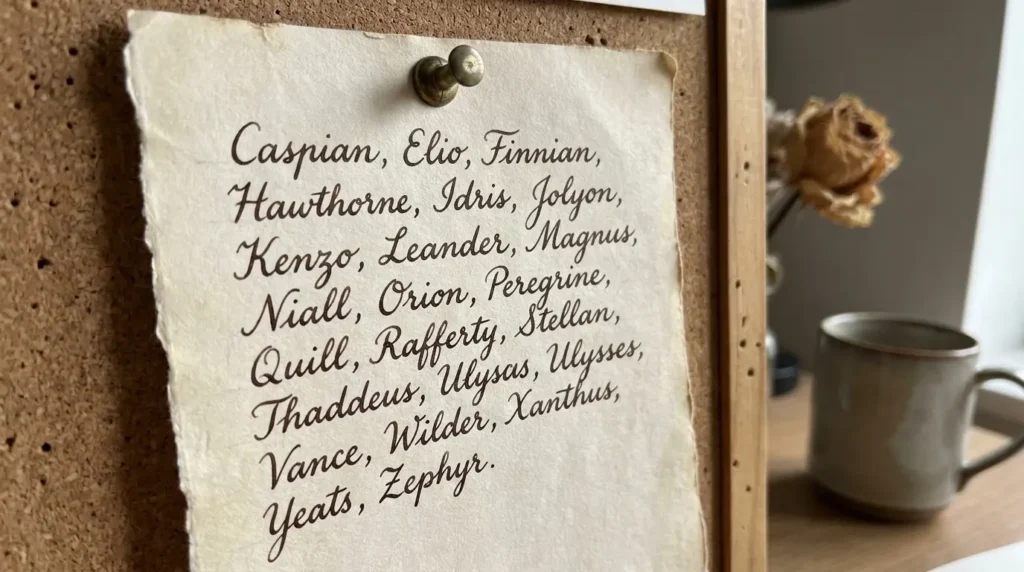 Caspian, Elio, Finnian,
Hawthorne, Idris, Jolyon,
Kenzo, Leander, Magnus,
Niall, Orion, Peregrine,
Quill, Rafferty, Stellan,
Thaddeus, Ulysas, Ulysses,
Vance, Wilder, Xanthus,
Yeats, Zephyr.